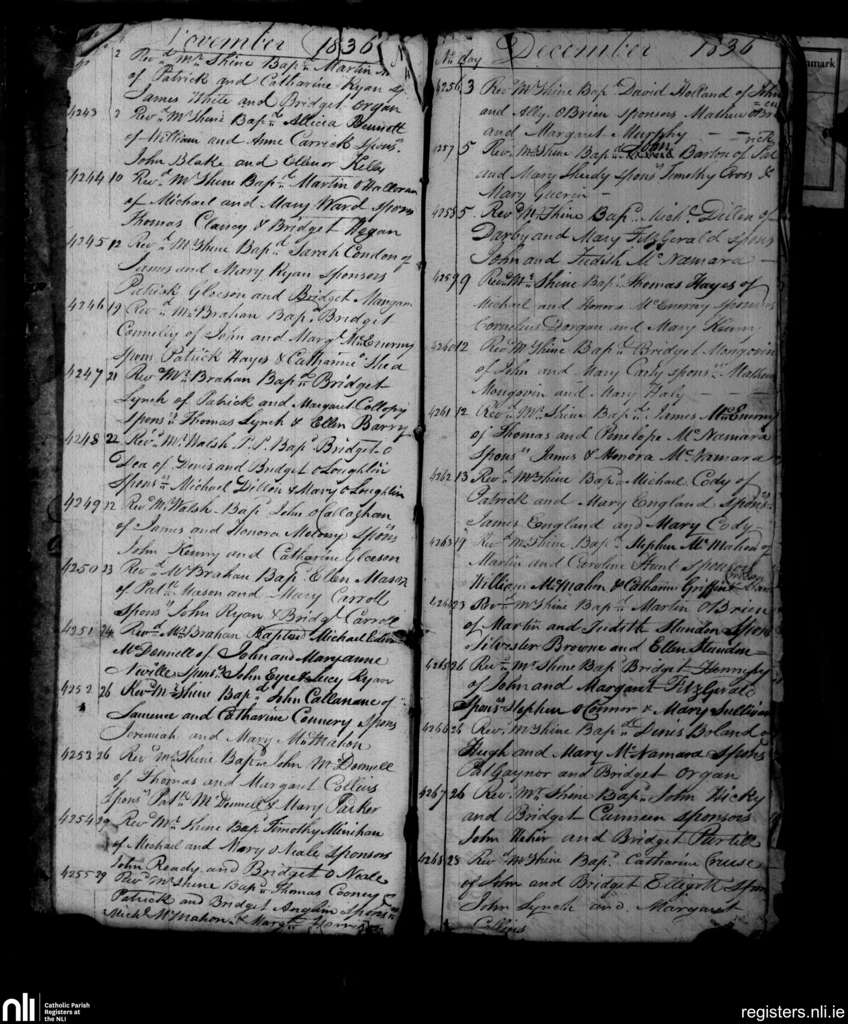 November 1836
2 Revd Mr Shine Bapd Martin
of Patrick and Catharine Ryan
James White and Bridget Organ
4243 2 Revd Mr Shine Bapd Allicia Bennett
of William and Anne Carrick Spons
John Blake and Ellenor Kelly
4244 10 Revd Mr Shine Bapd Martin O Halloran
of Michael and Mary Ward Spons
Thomas Clancy & Bridget Hogan
4245 12 Revd Mr Shine Bapd Sarah Condon of
James and Mary Ryan Sponsors
Patrick Gleeson and Bridget Mangan
4246 19 Revd Mr Brahan Bapd Bridget
Connelly of John and Margt McEnerny
Spons Patrick Hayes & Catharine Shea
4247 21 Revd Mr Brahan Bapd Bridget
Lynch of Patrick and Margaret Collopy
Sponsrs Thomas Lynch & Ellen Barry
4248 22 Revd Mr Walsh P.P. Bapd Bridget O
Dea of Denis and Bridget O Loughlin
Sponsrs Michael Dillon & Mary O Loughlin
4249 22 Revd Mr Walsh Bapd John O Callaghan
of James and Honora Molony Spons
John Kenny and Catharine Gleeson
4250 23 Revd Mr Brahan Bapd Ellen Mason
of Patk Mason and Mary Carroll
Sponsrs John Ryan & Bridgt Carroll
4251 24 Revd Mr Brahan Baptized Michael Edwin
McDonnell of John and Maryanne
Neville Sponsrs John Eyre & Lucy Ryan
4252 26 Revd Mr Shine Bapd John Callanane of
Laurence and Catharine Connery Spons
Jeremiah and Mary McMahon
4253 26 Revd Mr Shine Bapd John McDonnell
of Thomas and Margaret Collins
Sponsrs Patk McDonnell & Mary Parker
4254 29 Revd Mr Shine Bapd Timothy Minihan
of Michael and Mary O Neale Sponsors
John Ready and Bridget O Neale
4255 29 Revd Mr Shine Bapd Thomas Cooney of
Patrick and Bridget Anglim Sponsrs
Michl McMahon & Margt
No day December 1836
4256 3 Revd Mr Shine Bapd David Holland of John
and Ally O Brien Sponsors Mathew OBr=
=ien
and Margaret Murphy
4257 5 Revd Mr Shine Bapd John Barton of Pat
=rick
and Mary Sheedy Sponsrs Timothy Cross &
Mary Guerin
4258 5 Revd Mr Shine Bapd Michl Dillon of
Darby and Mary FitzGerald Spons
John and Judith McNamara
4259 9 Revd Mr Shine Bapd Thomas Hayes of
Michael and Honora McEnerny Sponsors
Cornelius Dorgan and Mary
4260 12 Revd Mr Shine Bapd Bridget Mongovin
of John and Mary Carty Sponsrs Mathew
Mongovin and Mary Haly
4261 12 Revd Mr Shine Bapd James McEnerny
of Thomas and Penelope McNamara
Sponsrs James & Honora McNamara
4262 13 Revd Mr Shine Bapd Michael Cody of
Patrick and Mary England Sponsrs
James England and Mary Cody
4263 19 Revd Mr Shine Bapd Stephen McMahon of
Martin and Caroline Hunt Sponsors
William McMahon & Catharine Griffin
4264 23 Revd Mr Shine Bapd Martin O Brien
of Martin and Judith Hunden Spons
Silvester Browne and Ellen Hunden
4265 26 Revd Mr Shine Bapd Bridget Hennessy
of John and Margaret FitzGerald
Sponsrs Stephen O Connor & Mary Sullivan
4266 26 Revd Mr Shine Bapd Denis Boland of
Hugh and Mary McNamara Sponsrs
Pat Gaynor and Bridget Organ
4267 26 Revd Mr Shine Bapd John Hicky
and Bridget Cunneen Sponsors
John Hehir and Bridget
4268 28 Revd Mr Shine Bapd Catharine Cruise
of John and Bridget Elligott Spons
John Lynch and Margaret
Collins
nli
Catholic Parish
Registers at
the NLI
registers.nli.ie